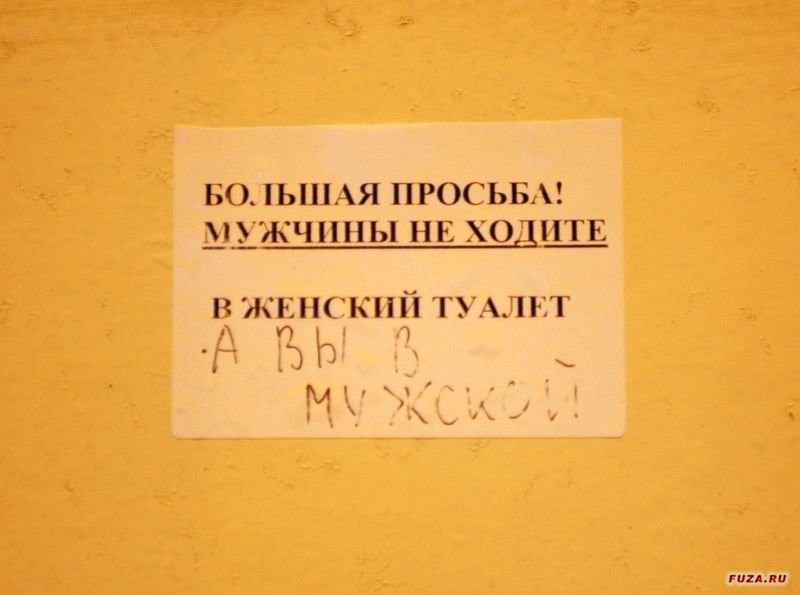 БОЛЬШАЯ ПРОСЬБА!
МУЖЧИНЫ НЕ ХОДИТЕ
В ЖЕНСКИЙ ТУАЛЕТ
А ВЫ В
МУЖСКОЙ
FUZA.RU